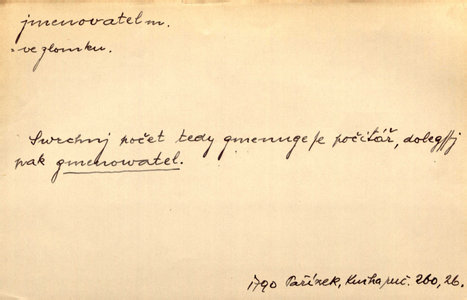 jmenovatel m.
ve zlomku.
Swrchnj počet tedy gmenuge se počitář, dolegssj
pak gmenowatel.
1790 Pařízek, Kniha poč. 260, 26.